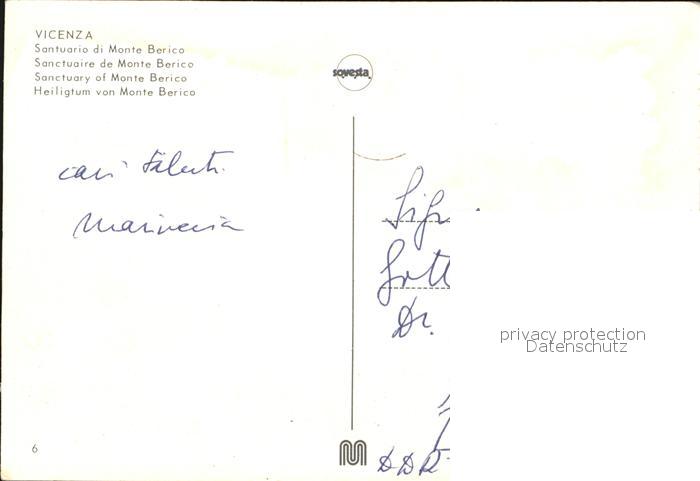 VICENZA
Santuario di Monte Berico
Sanctuaire de Monte Berico
Sanctuary of Monte Berico
Heiligtum von Monte Berico
sovesta
cari saluti
Sig
Gott
Dr.
privacy protection
Datenschutz
6
M
DDR